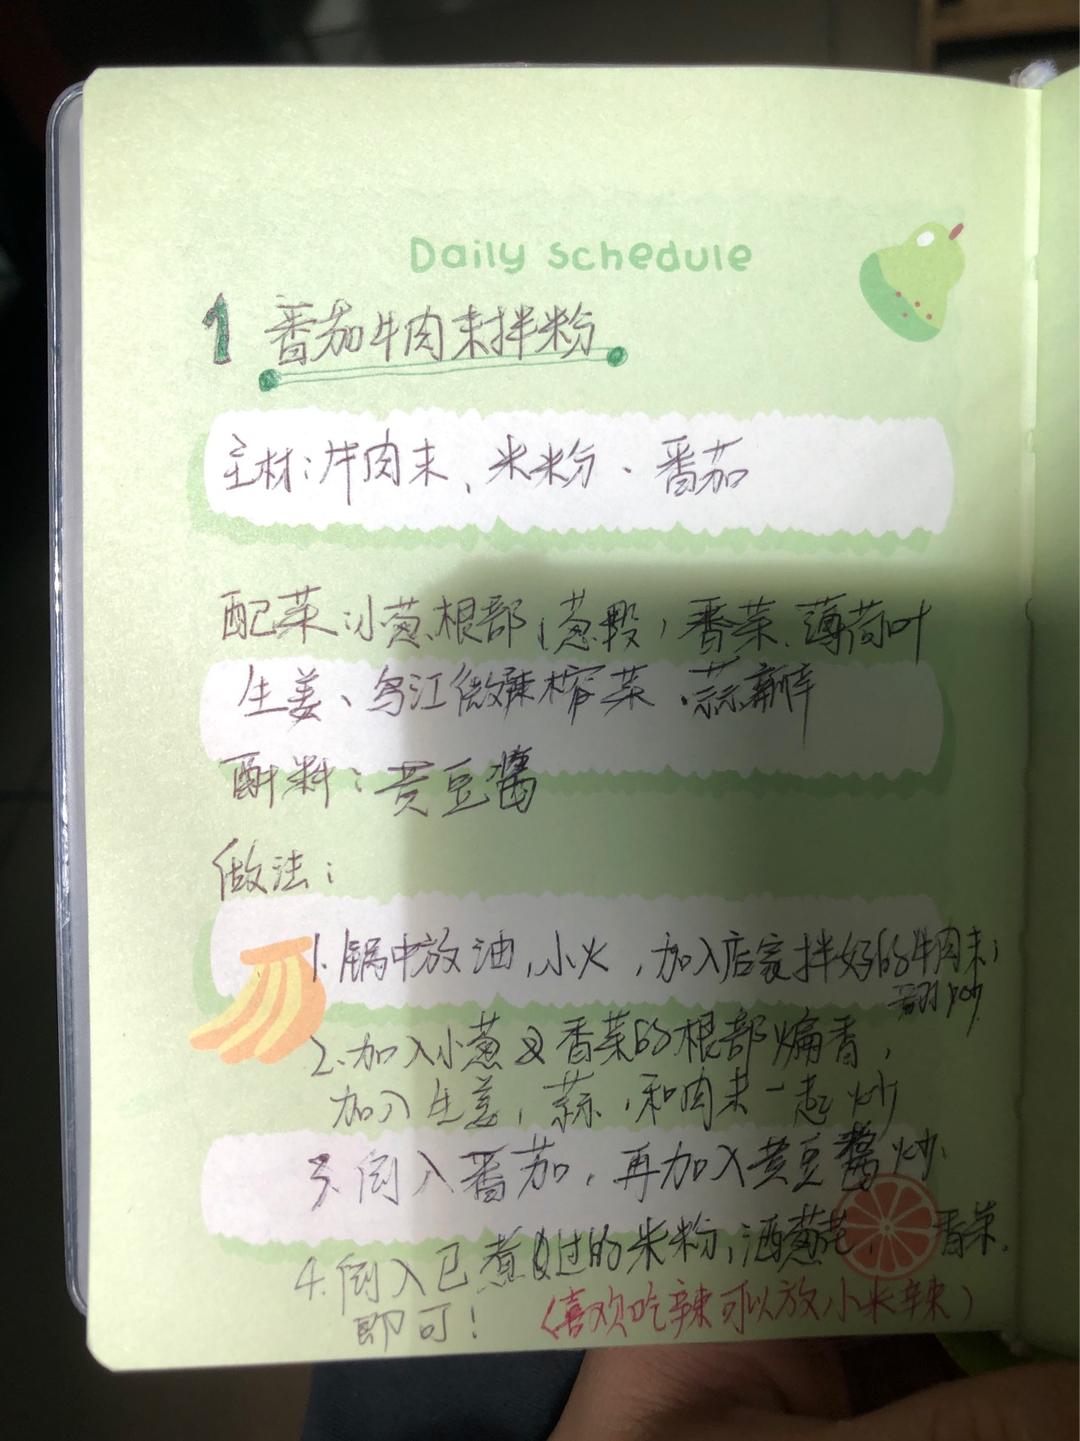 Daily Schedule
1 番茄牛肉末拌粉
主材：牛肉末、米粉、番茄
配菜：小葱根部（葱段）香菜、薄荷叶
生姜、乌江微辣榨菜、蒜瓣
酱料：黄豆酱
做法：
1.锅中放油，小火，加入店家拌好的牛肉末，
翻炒
2.加入小葱及香菜的根部煸香，
加入生姜，蒜，和肉末一起炒
3.倒入番茄，再加入黄豆酱炒.
4.倒入已煮过的米粉，洒葱花，香菜.
即可！（喜欢吃辣可以放小米辣）